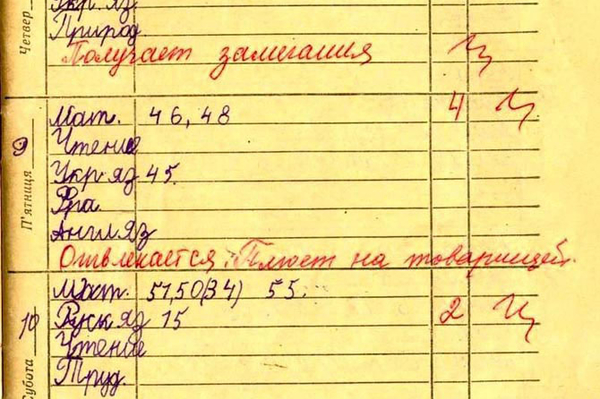 Четвер
Укр. яз
Природ
Получает замечания
9
П'ятниця
Мат. 46, 48 4
Чтение
Укр яз 45.
Фра
Англ яз
Отвлекается. Плюет на товарищей.
10
Субота
Мат. 51, 50 (34) 55.
Руск яз 15 2
Чтение
Труд.